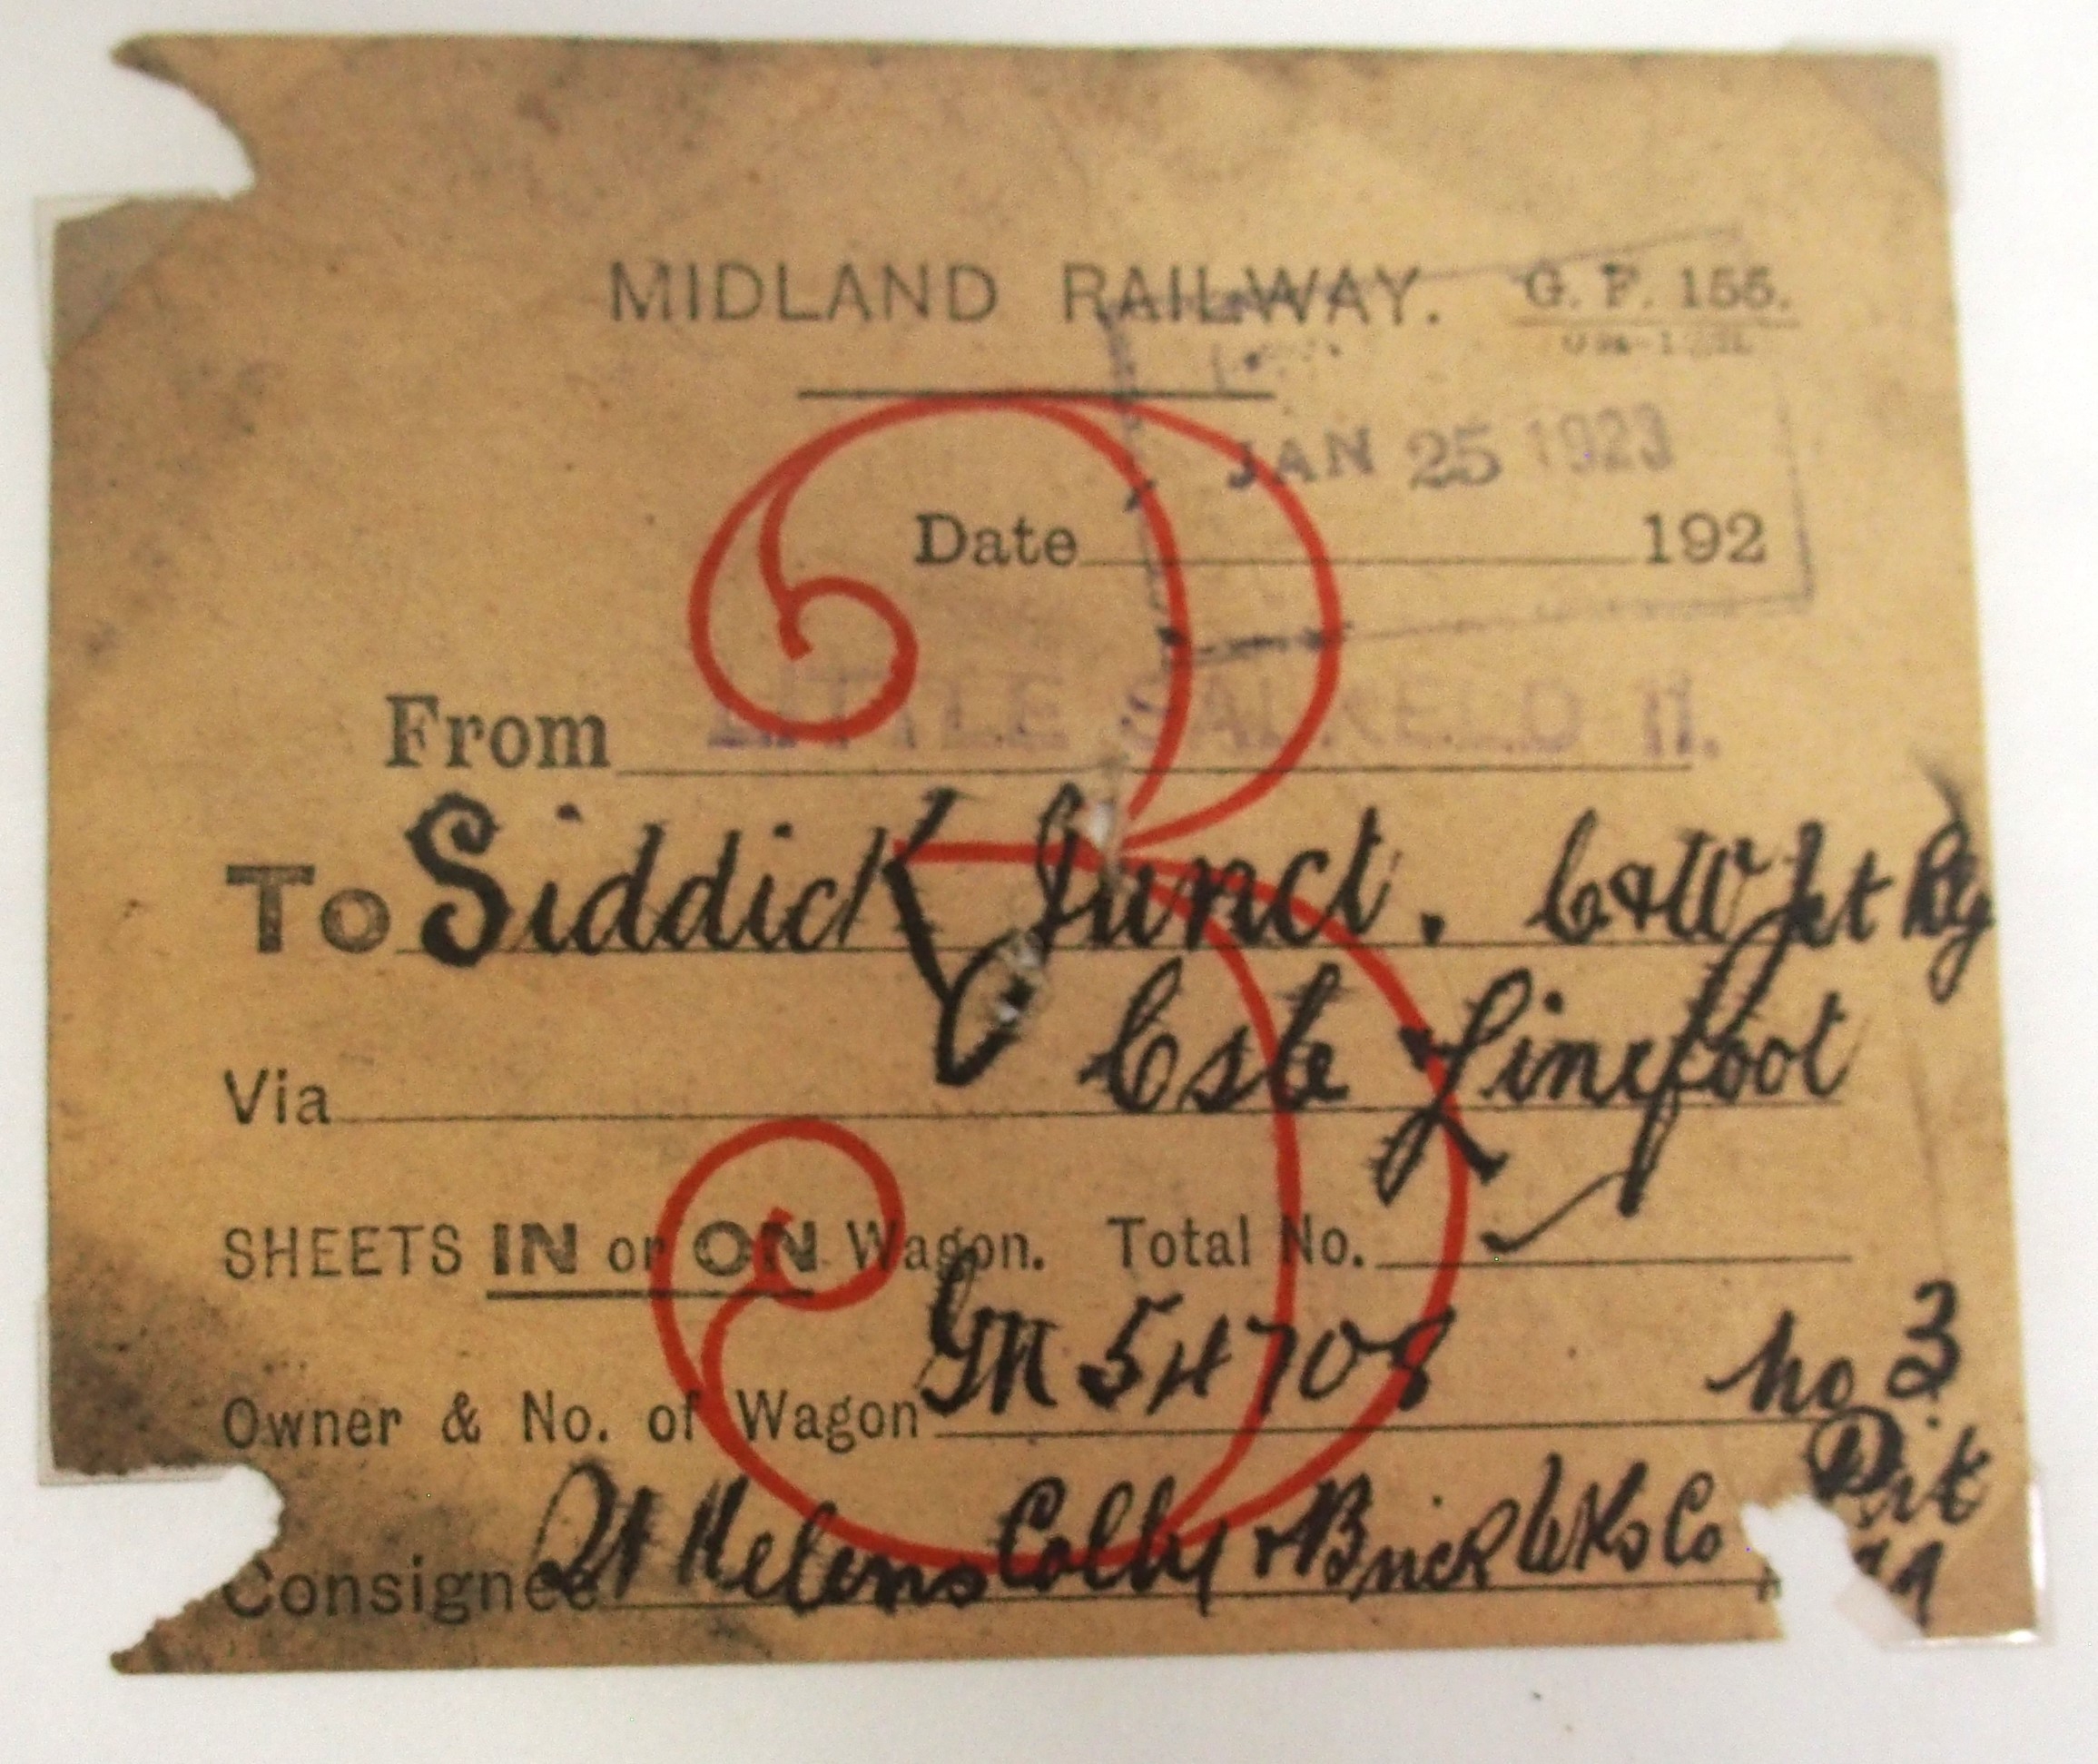 MIDLAND RAILWAY. G. F. 155.
JAN 25 1923
Date 192
From LITTLE SALKELD 11.
To Siddick Junct. C & W Jct Ry
Via C & Linefoot
SHEETS IN or ON Wagon. Total No.
3
Owner & No. of Wagon GN 54708 No 3
Pit
Consignee St Helens Colly & Brick Wks Co